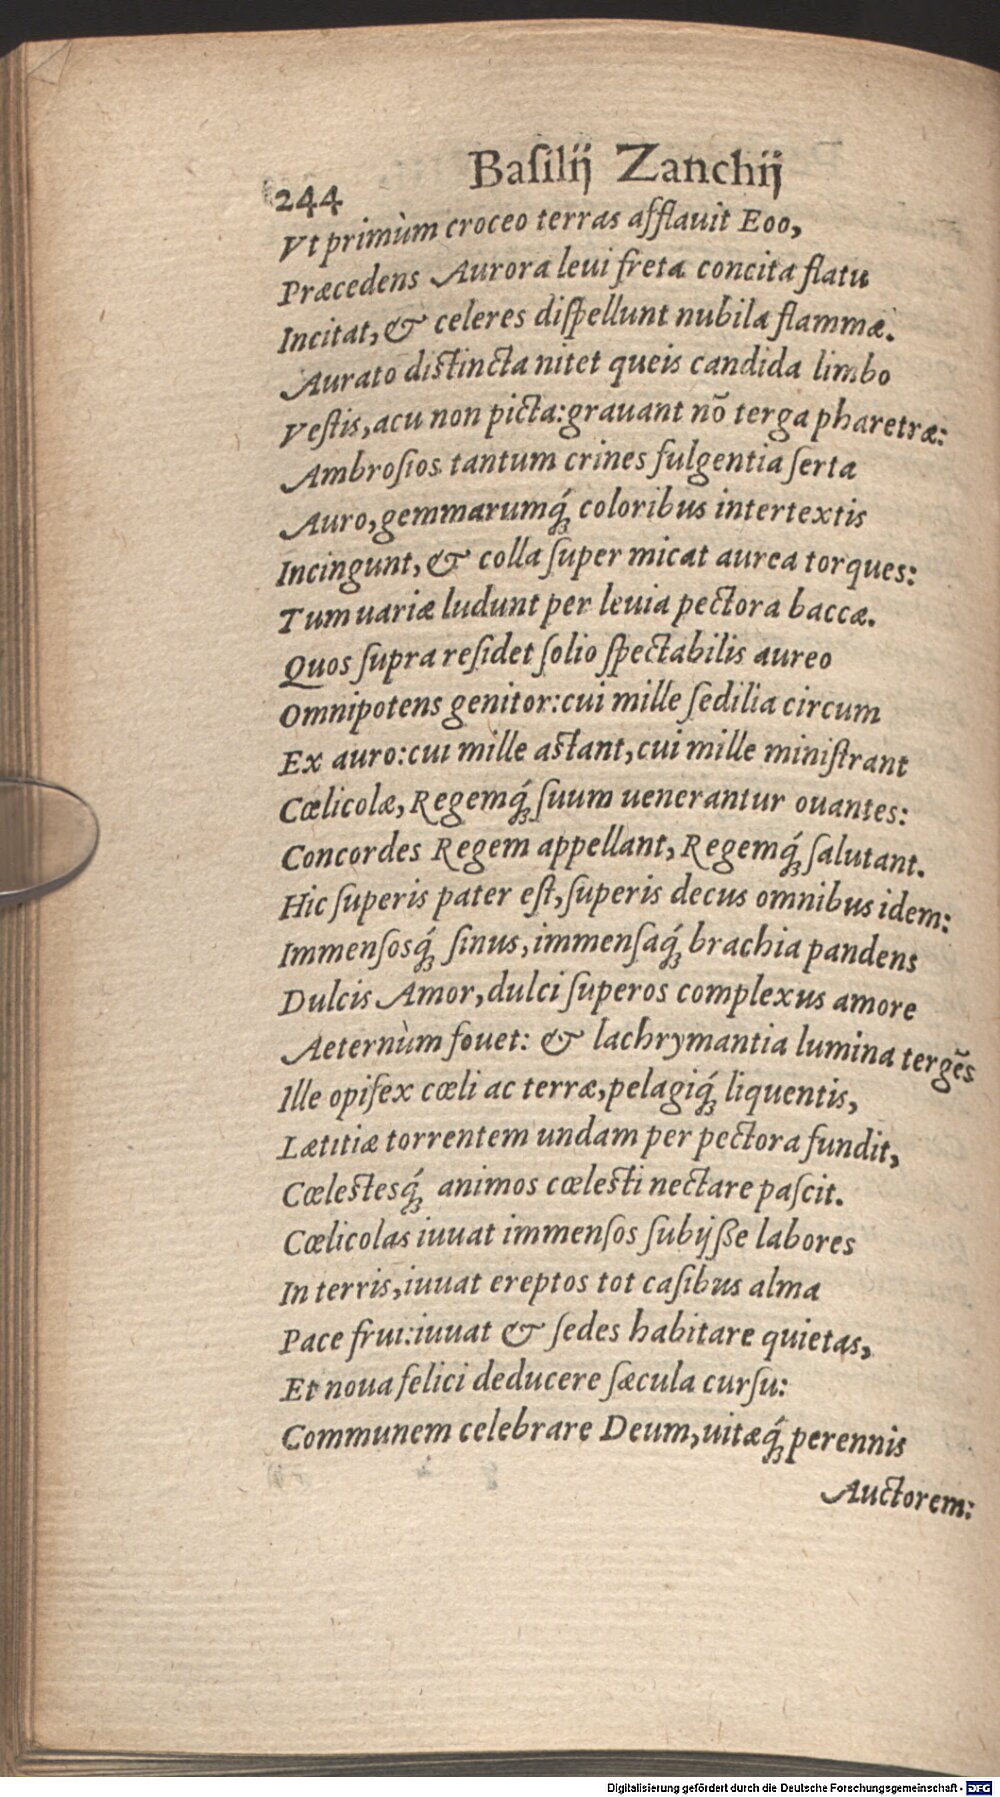 244 Baſilij Zanchij
Vt primùm croceo terras afflauit Eoo,
Præcedens Aurora leui freta concita flatu
Incitat, & celeres diſpellunt nubila flammæ.
Aurato diſtincta nitet queis candida limbo
Veſtis, acu non picta: grauant nō terga pharetræ:
Ambroſios tantum crines fulgentia ſerta
Auro, gemmarumq́; coloribus intertextis
Incingunt, & colla ſuper micat aurea torques:
Tum uariæ ludunt per leuia pectora baccæ.
Quos ſupra reſidet ſolio ſpectabilis aureo
Omnipotens genitor: cui mille ſedilia circum
Ex auro: cui mille aſtant, cui mille miniſtrant
Cœlicolæ, Regemq́; ſuum uenerantur ouantes:
Concordes Regem appellant, Regemq́; ſalutant.
Hic ſuperis pater eſt, ſuperis decus omnibus idem:
Immenſosq́; ſinus, immenſaq́; brachia pandens
Dulcis Amor, dulci ſuperos complexus amore
Aeternùm fouet: & lachrymantia lumina tergēs
Ille opifex cœli ac terræ, pelagiq́; liquentis,
Lætitiæ torrentem undam per pectora fundit,
Cœleſtesq́; animos cœleſti nectare paſcit.
Cœlicolas iuuat immenſos ſubijſſe labores
In terris, iuuat ereptos tot caſibus alma
Pace frui: iuuat & ſedes habitare quietas,
Et noua felici deducere ſæcula curſu:
Communem celebrare Deum, uitæq́; perennis
Auctorem:
Digitalisierung gefördert durch die Deutsche Forschungsgemeinschaft - DFG